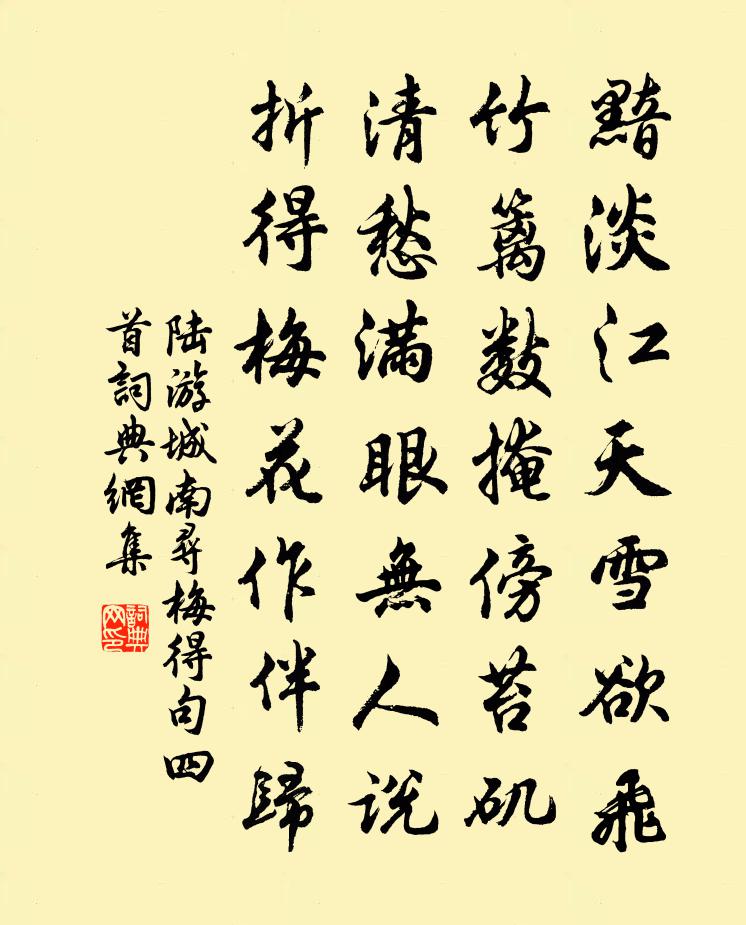 黯淡江天雪欲飛
竹籬數掩傍苔矶
清愁滿眼無人説
折得梅花作伴歸
陆游城南尋梅得句四
首詞典網集
詞典网印